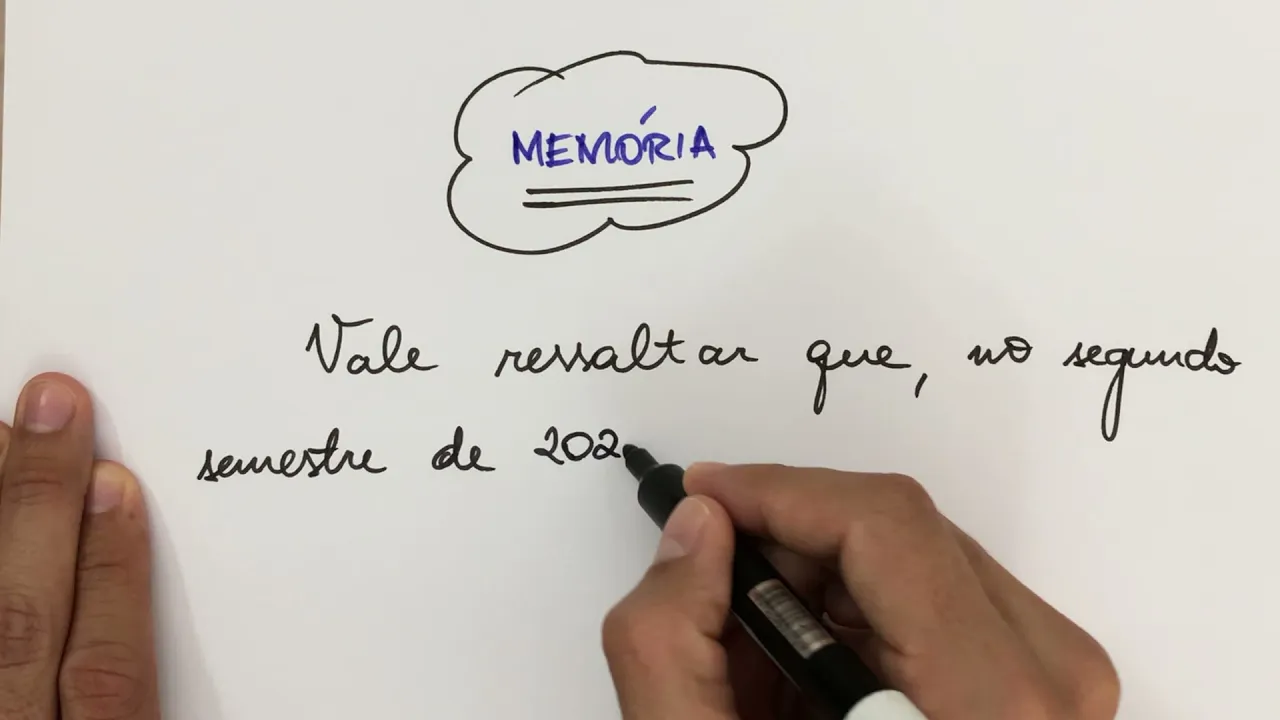 MEMÓRIA
Vale ressaltar que, no segundo
semestre de 202